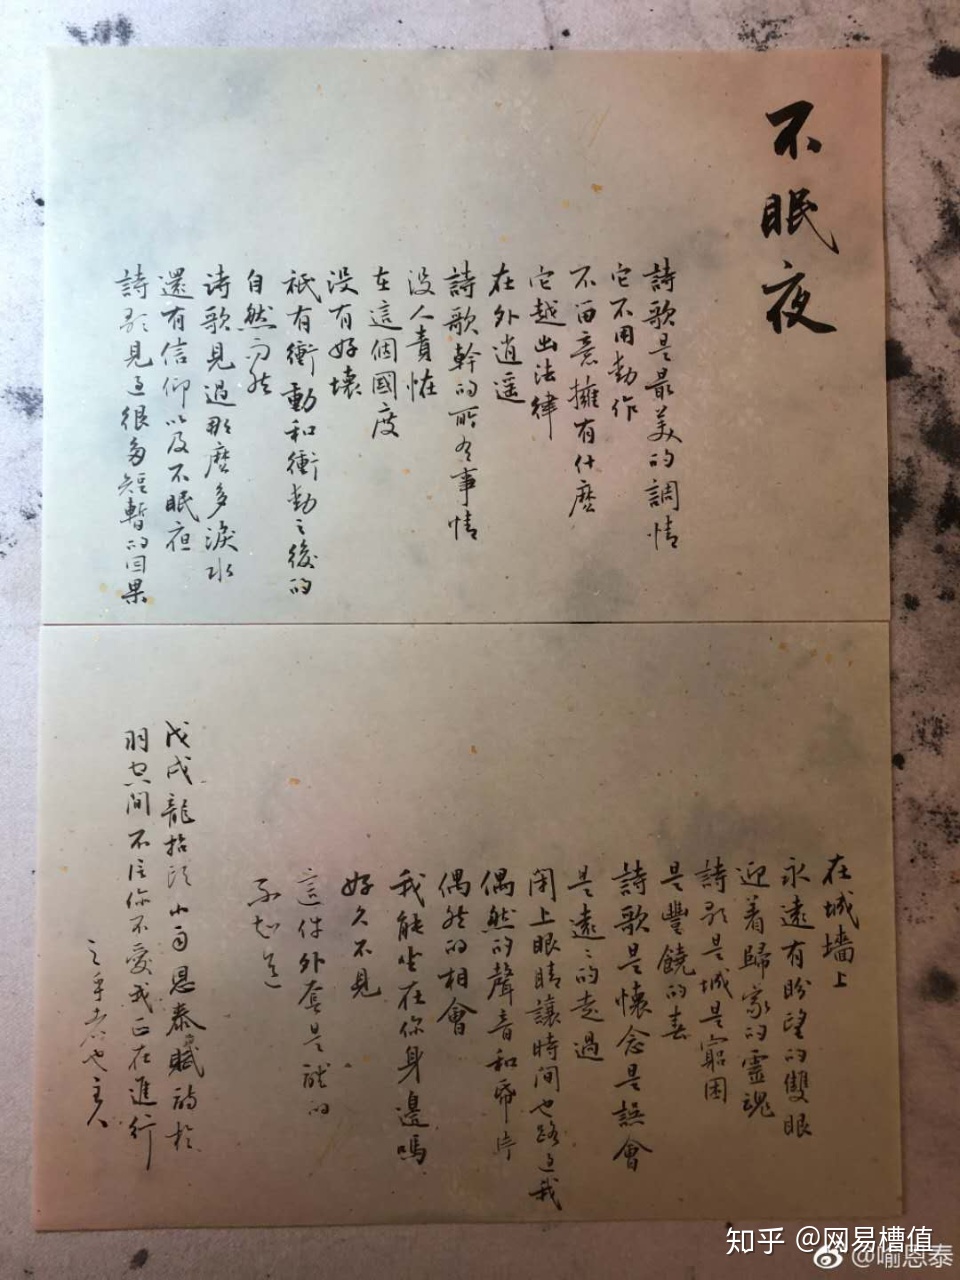 不眠夜
詩歌是最美的調情
它不用動作
不留意擁有什麽
它越出法律
在外逍遥
詩歌幹的所有事情
没人責怪
在這個國度
没有好壞
祇有衝動和衝動之後的
自然而然
诗歌見過那麽多淚水
還有信仰以及不眠夜
詩歌見過很多短暫的因果
在城墻上
永遠有盼望的雙眼
迎着歸家的靈魂
詩歌是城是窮困
是豐饒的春
詩歌是懷念是誤會
是遠遠的走過
閉上眼睛讓時间也路過我
偶然的聲音和
偶然的相會
我能坐在你身邊嗎
好久不見
這件外套是誰的
不知道
戊戌龍抬頭小雨恩泰賦詩於
羽空间不信你不愛我正在進行
之乎者也主人
知乎 @网易槽值
@喻恩泰